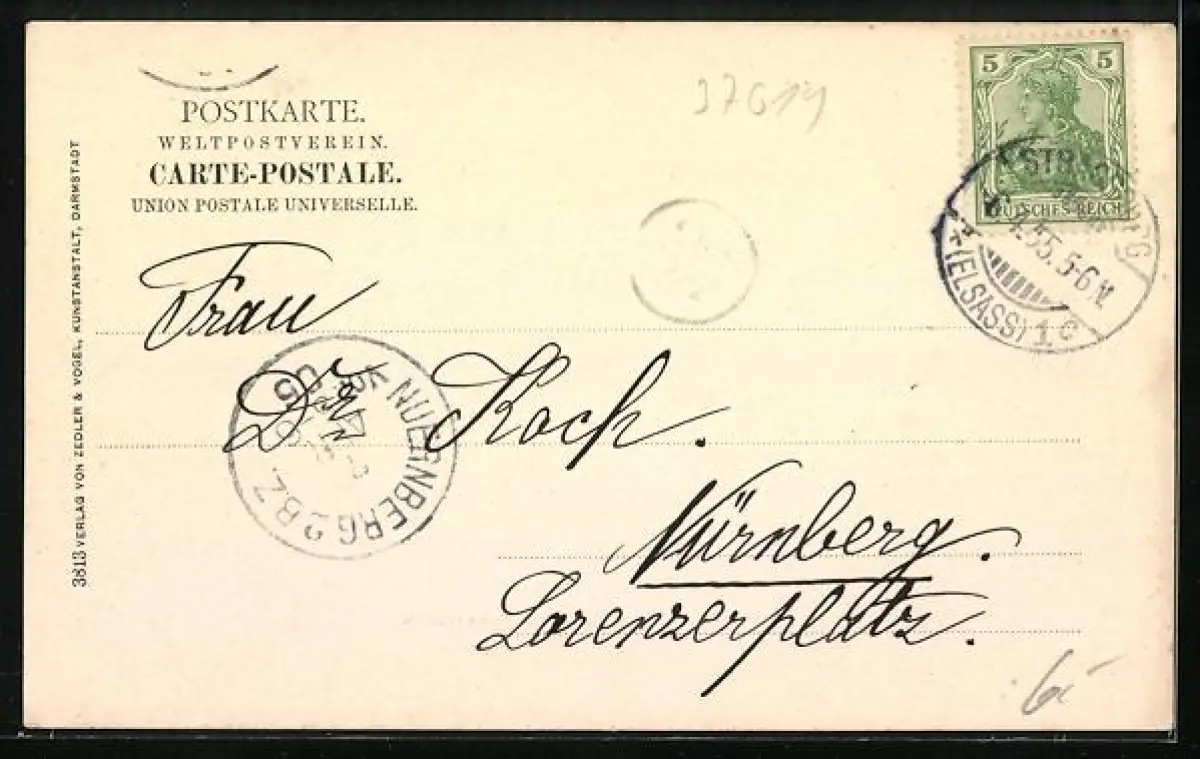 POSTKARTE.
WELTPOSTVEREIN.
CARTE-POSTALE.
UNION POSTALE UNIVERSELLE.
37614
5 5
DEUTSCHES REICH
STRASSBURG
5-6 N
* (ELSASS) 1. C
3813 VERLAG VON ZEDLER & VOGEL, KUNSTANSTALT, DARMSTADT
Frau
Dr. Koch.
NUERNBERG 2 B.Z.
Nürnberg.
Lorenzerplatz.